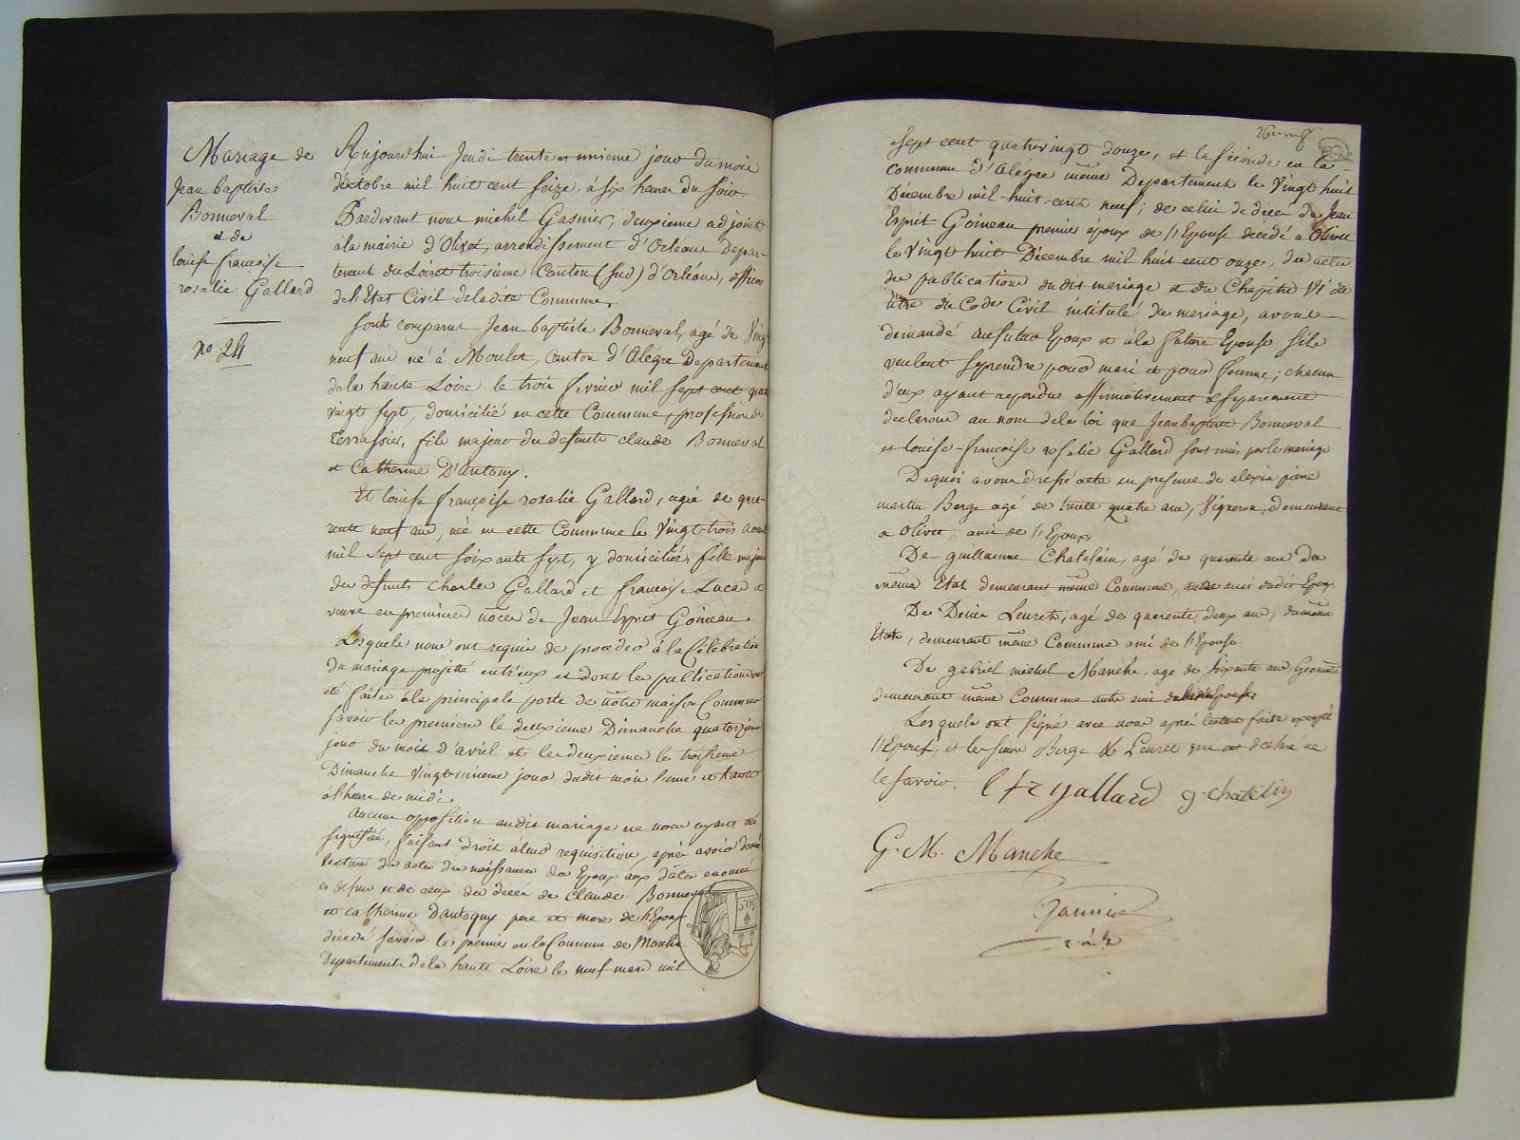 Mariage de
Jean baptiste
Bonneval
et de
louise francoise
rosalie Gallard
no. 24
Aujourd'hui Jeudi trente et unieme jour du mois
d'octobre mil huit cent seize à six heures du soir
Pardevant nous michel Gasnier, deuxieme adjoint
à la mairie d'Olivet, arrondissement d'Orleans Depar-
tement du Loiret troisieme Canton (sud) d'Orléans, officier
de l'Etat Civil de ladite Commune,
Sont comparus Jean baptiste Bonneval, agé de Vingt
neuf ans né à Moulet, canton d'Alegre Departement
de la haute Loire le trois fevrier mil sept cent quatre
vingt sept, domicilié en cette Commune, profession de
terrassier, fils majeur du defunts claude Bonneval
et Catherine D'antony.
Et louise françoise rosalie Gallard, agée de qua-
rante neuf ans, née en cette Commune le Vingt trois aout
mil sept cent soixante sept, y domiciliée, fille majeure
des defunts Charles Gallard et françoise Lucas et
veuve en premieres noces de Jean Esprit Goineau.
Lesquels nous ont requis de proceder à la Célébration
du mariage projetté entr'eux et dont les publications ont
été faites à la principale porte de nôtre maison Commune
savoir la premiere le deuxieme Dimanche quatorzieme
jour du mois d'avril et la deuxieme le troisieme
Dimanche vingt unieme jour dudit mois
à l'heure de midi.
Aucune opposition audit mariage ne nous ayant été
signifiée, faisant droit à leur requisition, après avoir donné
lecture des actes de naissances des Epoux aux dates énoncées
ci dessus et de ceux de décés de Claude Bonneval
et catherine Dantogny pere et mere de l'Epoux
décédés savoir le premier en la Commune de
Departement de la haute Loire le neuf mars mil
sept cent quatrevingt douze, et la seconde en la
commune d'Alegre même Departement le Vingt huit
Décembre mil-huit-cent neuf; de celui de décés de Jean
Esprit Goineau premier époux de l'Epouse decédé à Olivet
le Vingt huit Décembre mil huit cent onze, des actes
de publications dudit mariage et du Chapitre VI du
titre du Code Civil intitulé du mariage, avons
demandé au futur Epoux et à la future Epouse s'ils
veulent se prendre pour mari et pour femme; chacun
d'eux ayant repondu affirmativement & séparement
declarons au nom de la loi que Jean baptiste Bonneval
et louise-francoise rosalie Gallard sont unis par le mariage
De quoi avons dressé acte en presence de alexis pierre
martin Berge agé de trente quatre ans, Vigneron, demeurant
à Olivet, ami de l'Epoux,
De guillaume Chatelain, agé de quarante ans du
même Etat demeurant même Commune, aussi ami dudit Epoux
De Denis Leuret, agé de quarente deux ans, du même
Etat, demeurant même Commune ami de l'Epouse
De gabriel michel Manche, age de soixante ans
demeurant même Commune ami de
Lesquels ont signé avec nous après lecture faite excepté
l'Epoux, et les sieurs Berge & Leuret qui ont déclaré ne
le savoir.
l f r gallard
g. chatelin
G. M. Manche
Gasnier